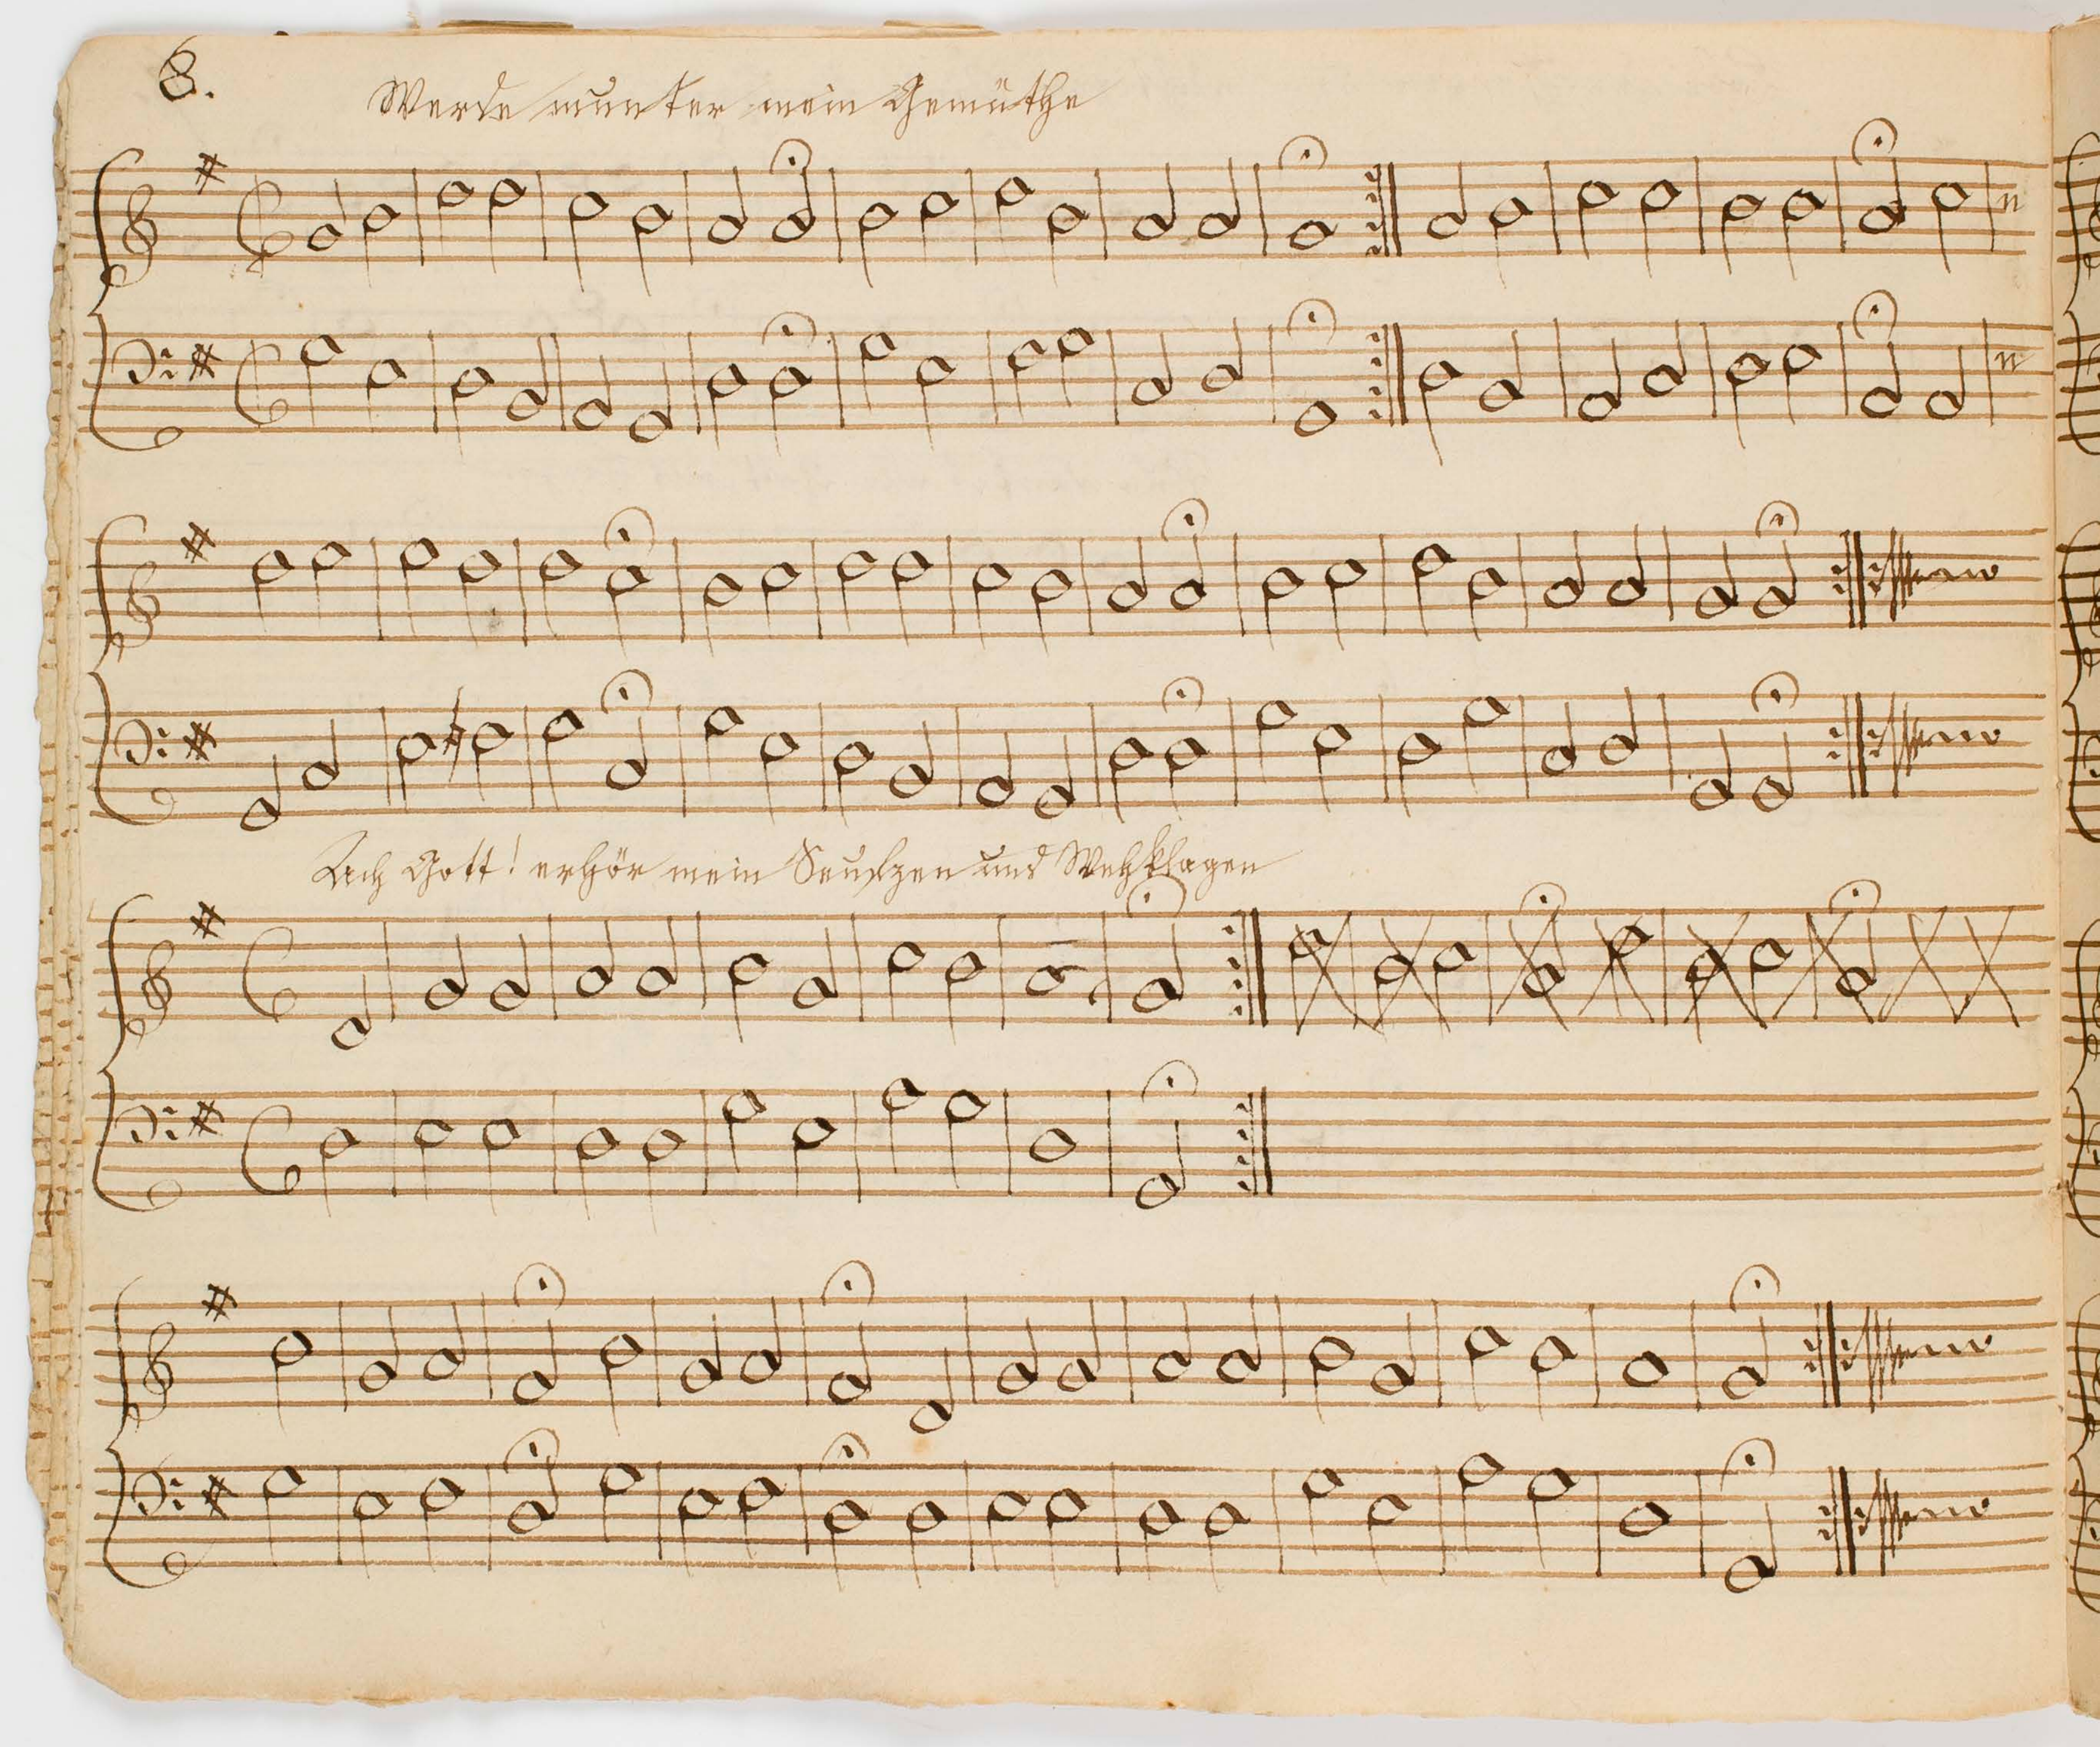 8.
Werde munter mein Gemüthe
Ach Gott! erhör mein Seufzen und Wehklagen